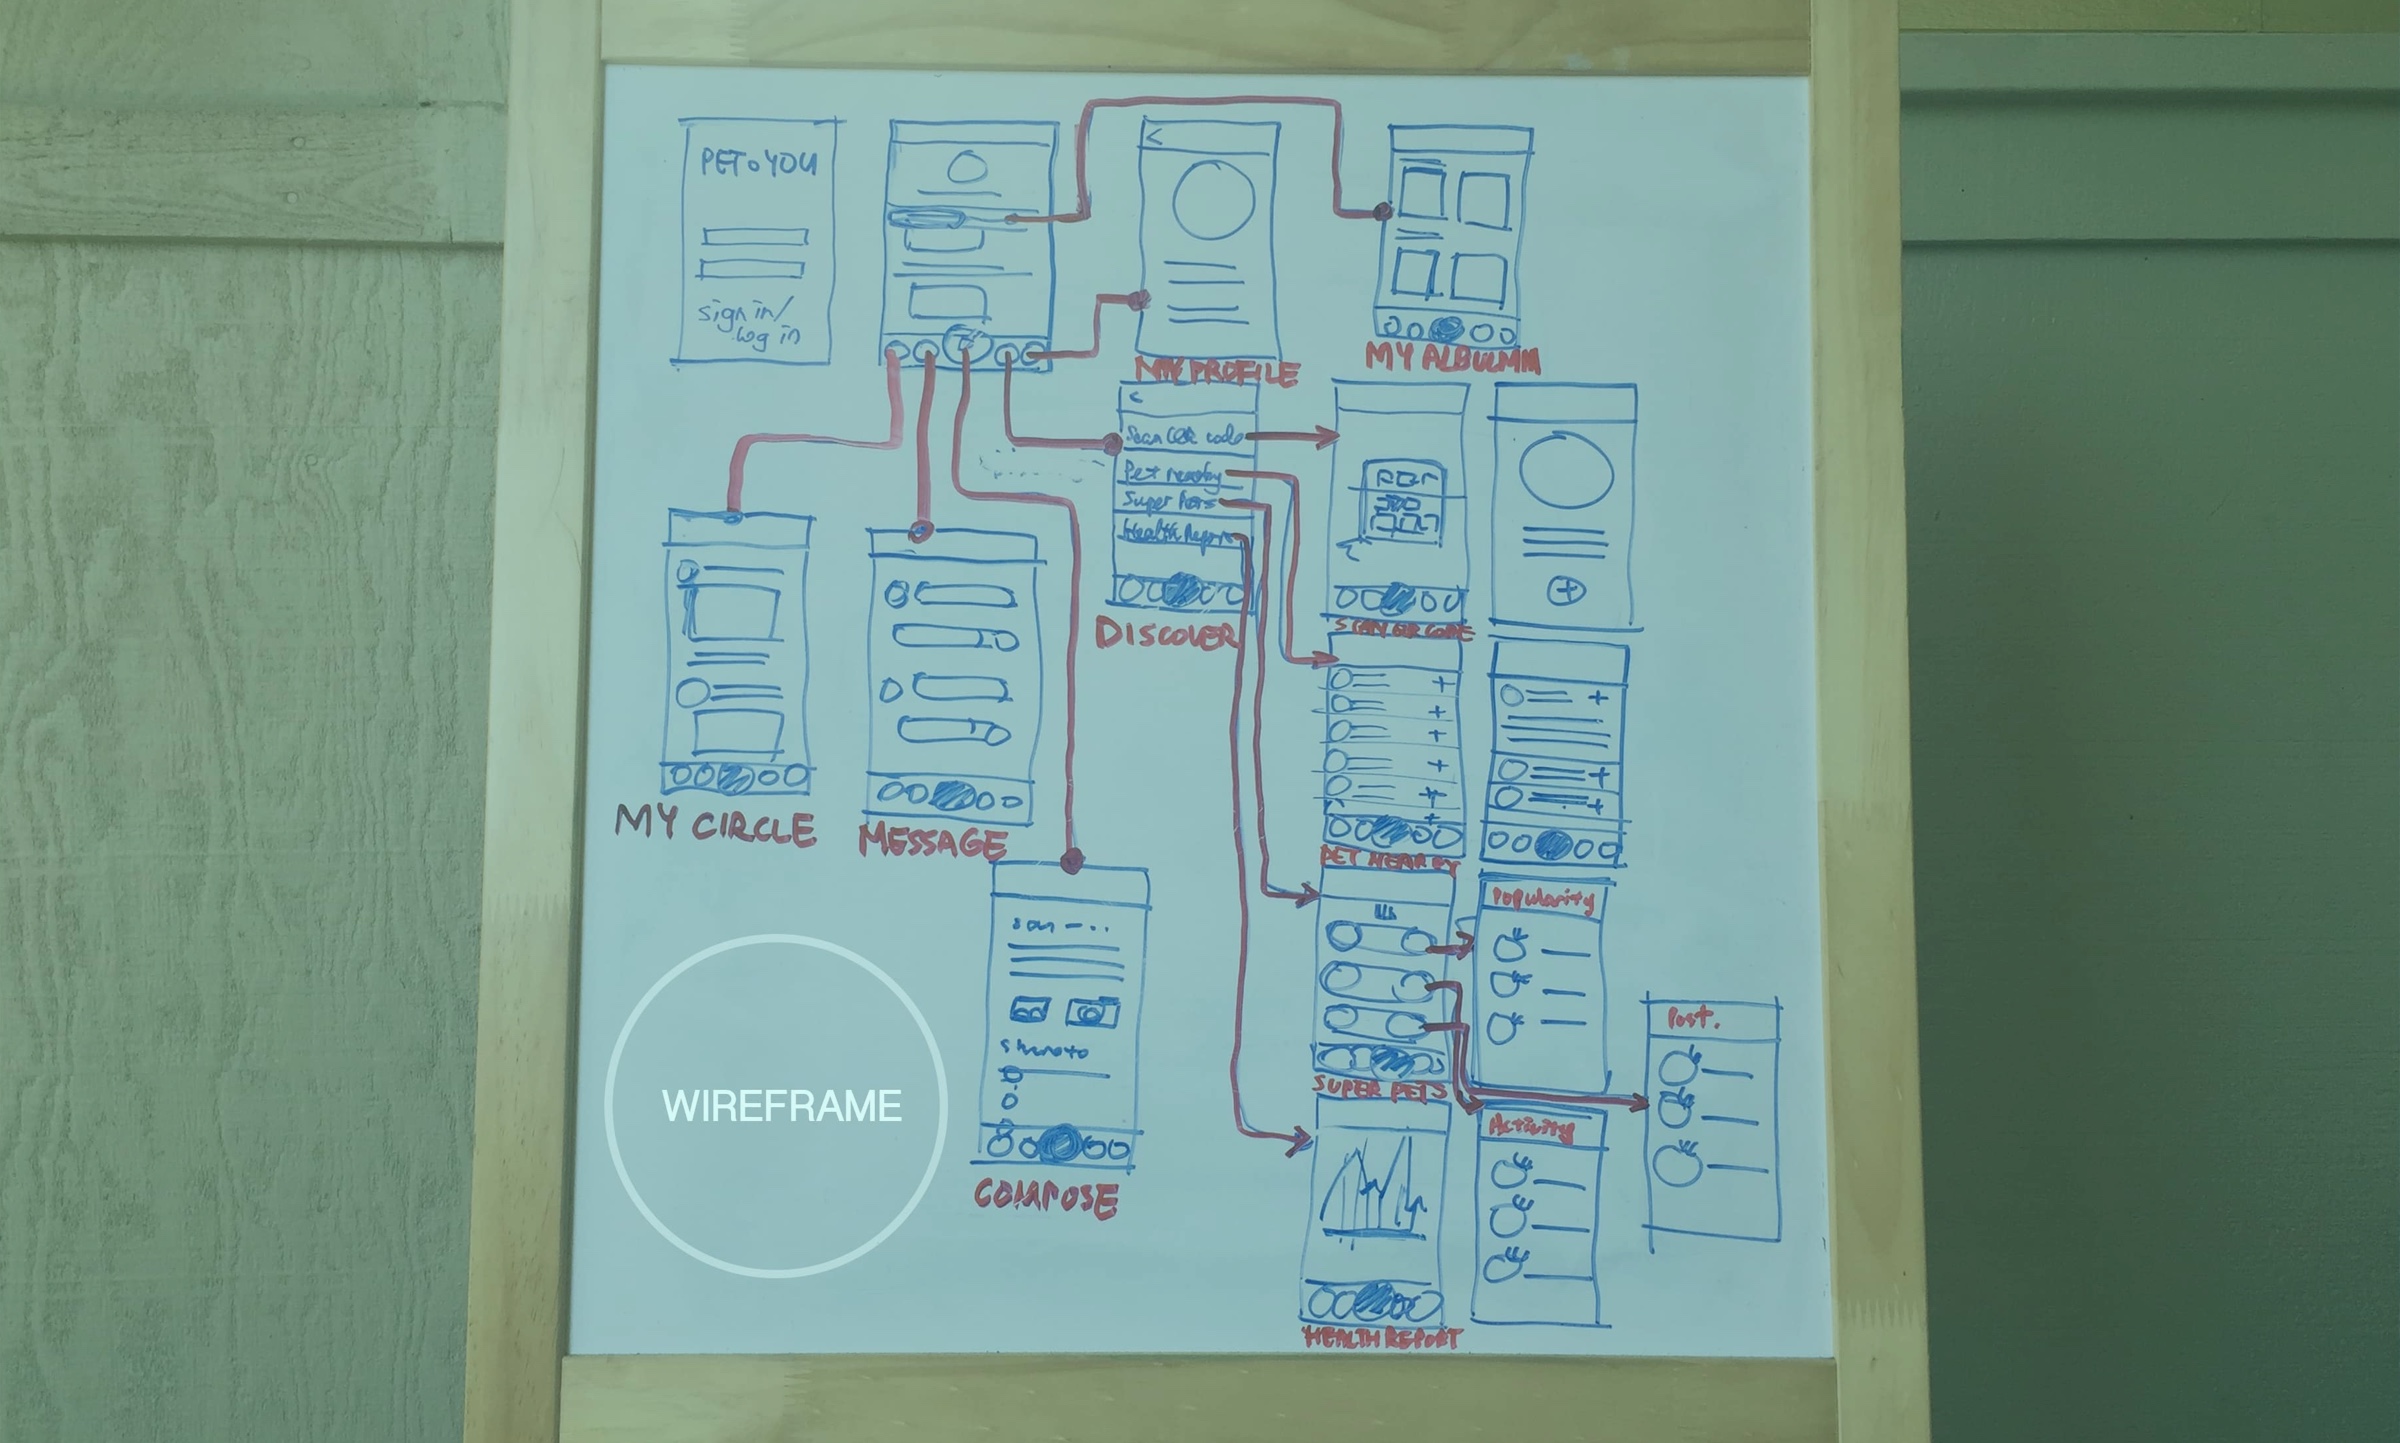 PEToYOU
sign in/
log in
<
MY PROFILE
MY ALBULMM
<
Scan QR code
Pet nearby
Super Pets
Health Report
DISCOVER
SCAN QR CODE
MY CIRCLE
MESSAGE
PET NEARBY
Popularity
SUPER PETS
Post.
Activity
share to
COMPOSE
HEALTH REPORT
WIREFRAME